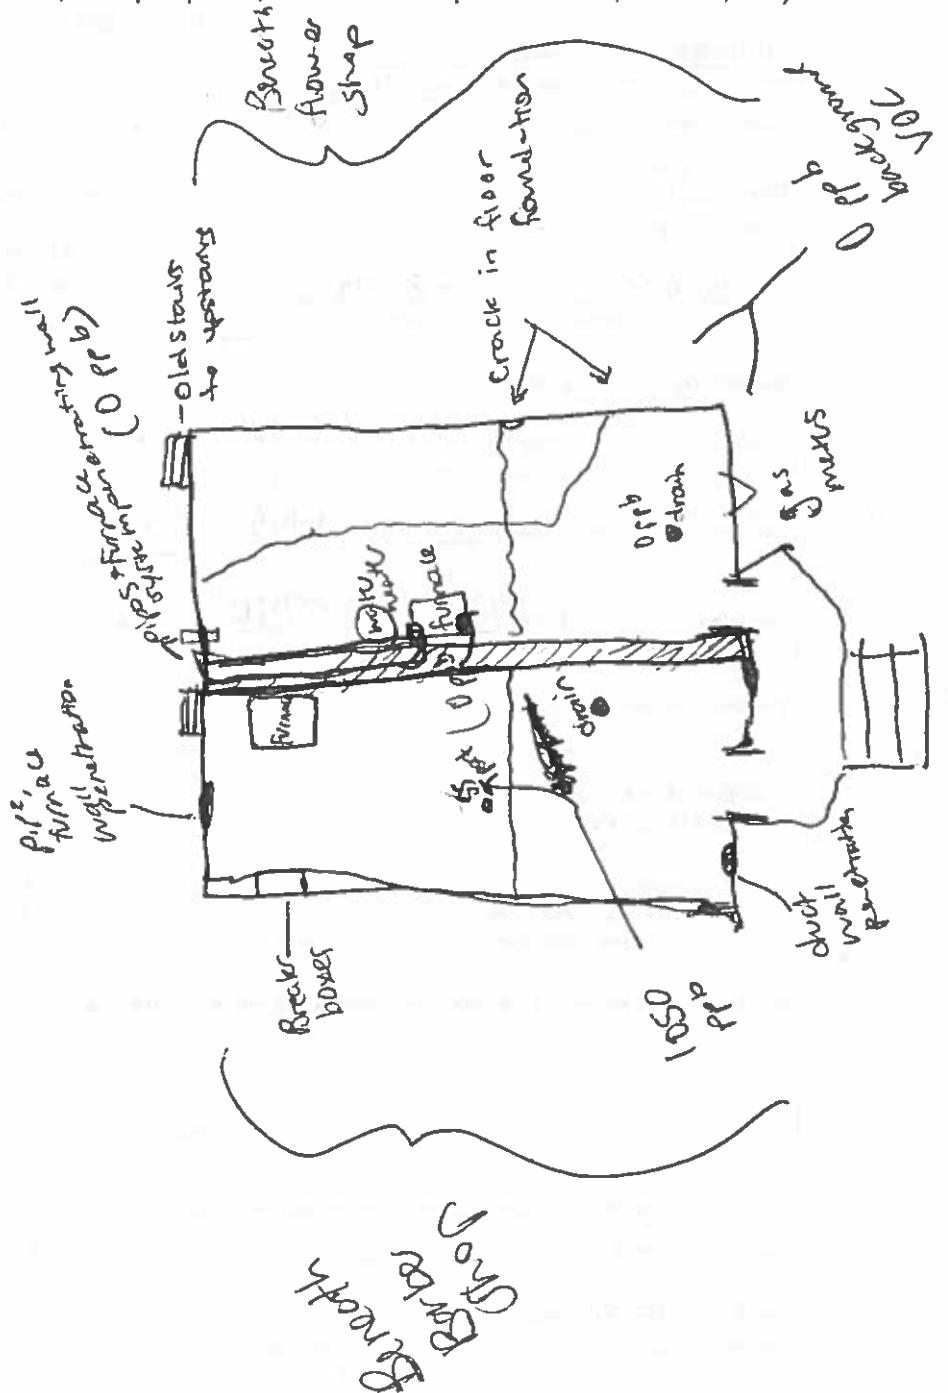 Beneath
flower
shop
0 ppb
background
VOC
crack in floor
foundation
old stairs
to upstairs
pipes + furnace
penetrating wall
(0 ppb)
water
heater
furnace
0 ppb
drain
gas
meters
pipe,
furnace
wall
penetration
furnace
drain
duct
wall
penetration
Breaker
boxes
1050
ppb
Beneath
Barber
Shop